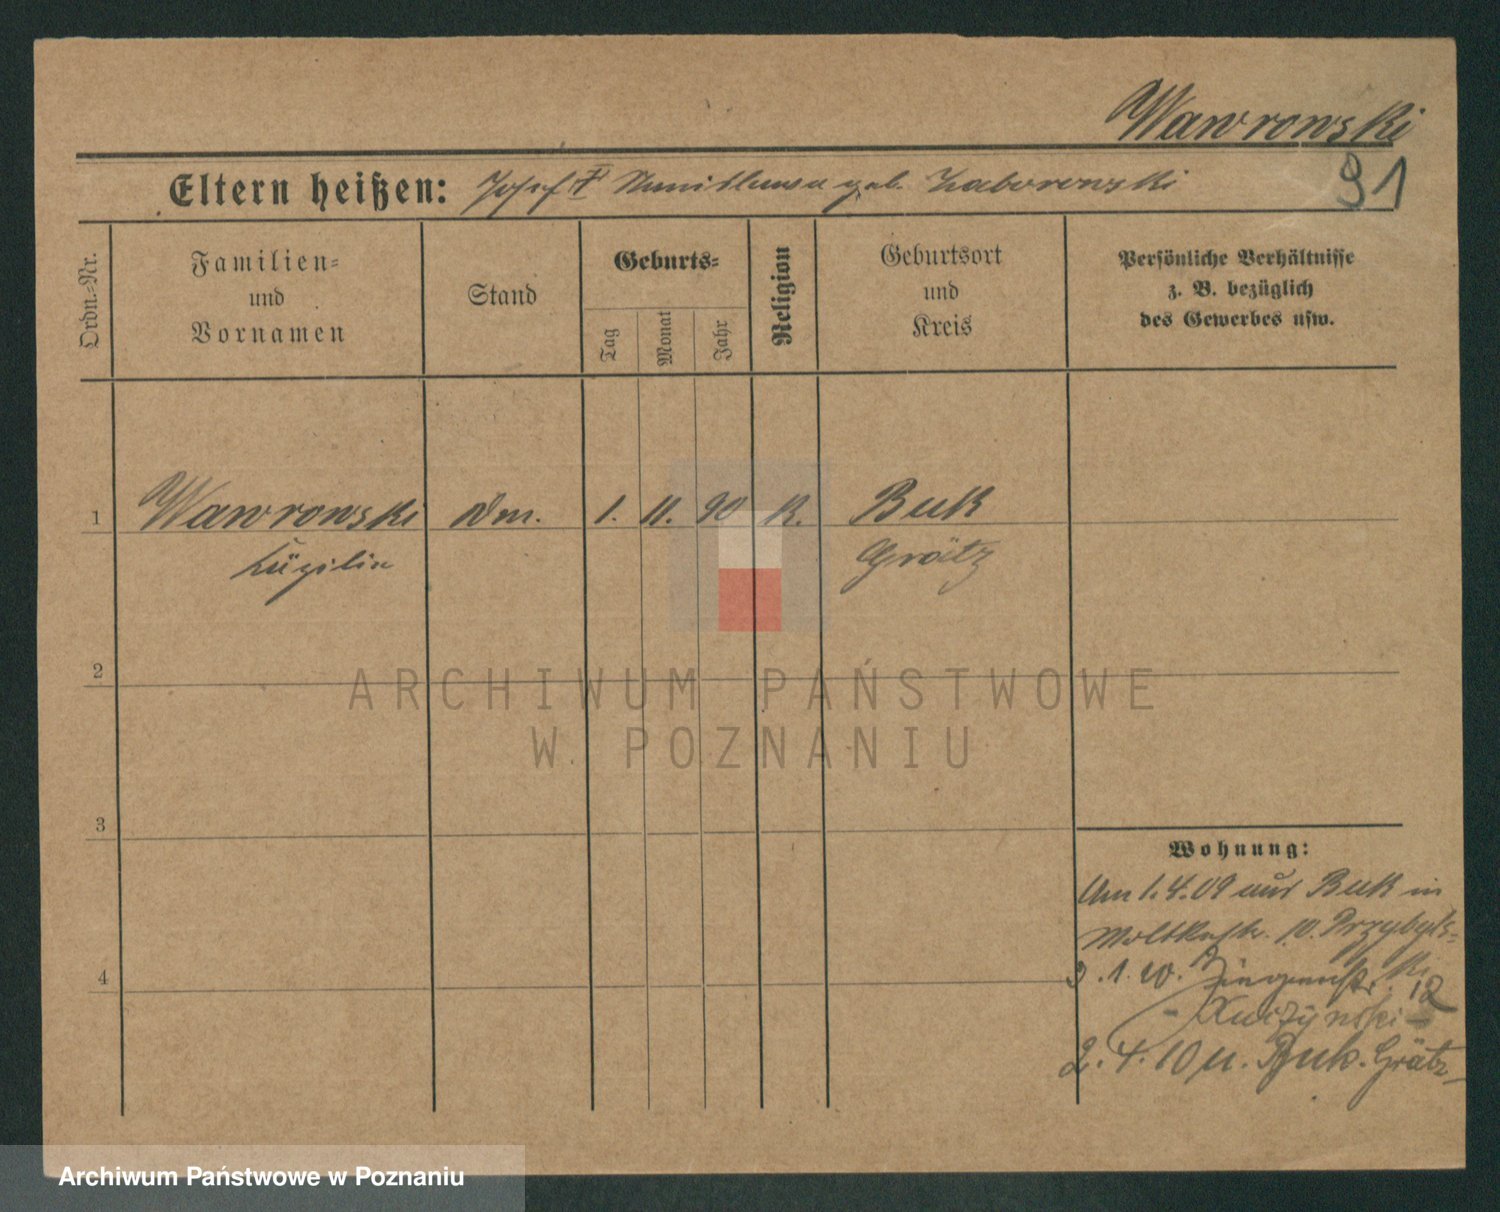 Wawrowski
91
Eltern heißen: Josef geb. Zaborowski
Ordn.-Nr.
Familien-
und
Vornamen
Stand
Geburts-
Tag
Monat
Jahr
Religion
Geburtsort
und
Kreis
Persönliche Verhältnisse
z. B. bezüglich
des Gewerbes usw.
1 Wawrowski 1. 11. 90 K. Buk
Grätz
2
3
4
Wohnung:
Am 1.4.09 aus Buk in
Moltkestr. 10. Przybyls-
ki
3.1.10. 12
2.4.10 n. Buk. Grätz
ARCHIWUM PAŃSTWOWE
W POZNANIU
Archiwum Państwowe w Poznaniu